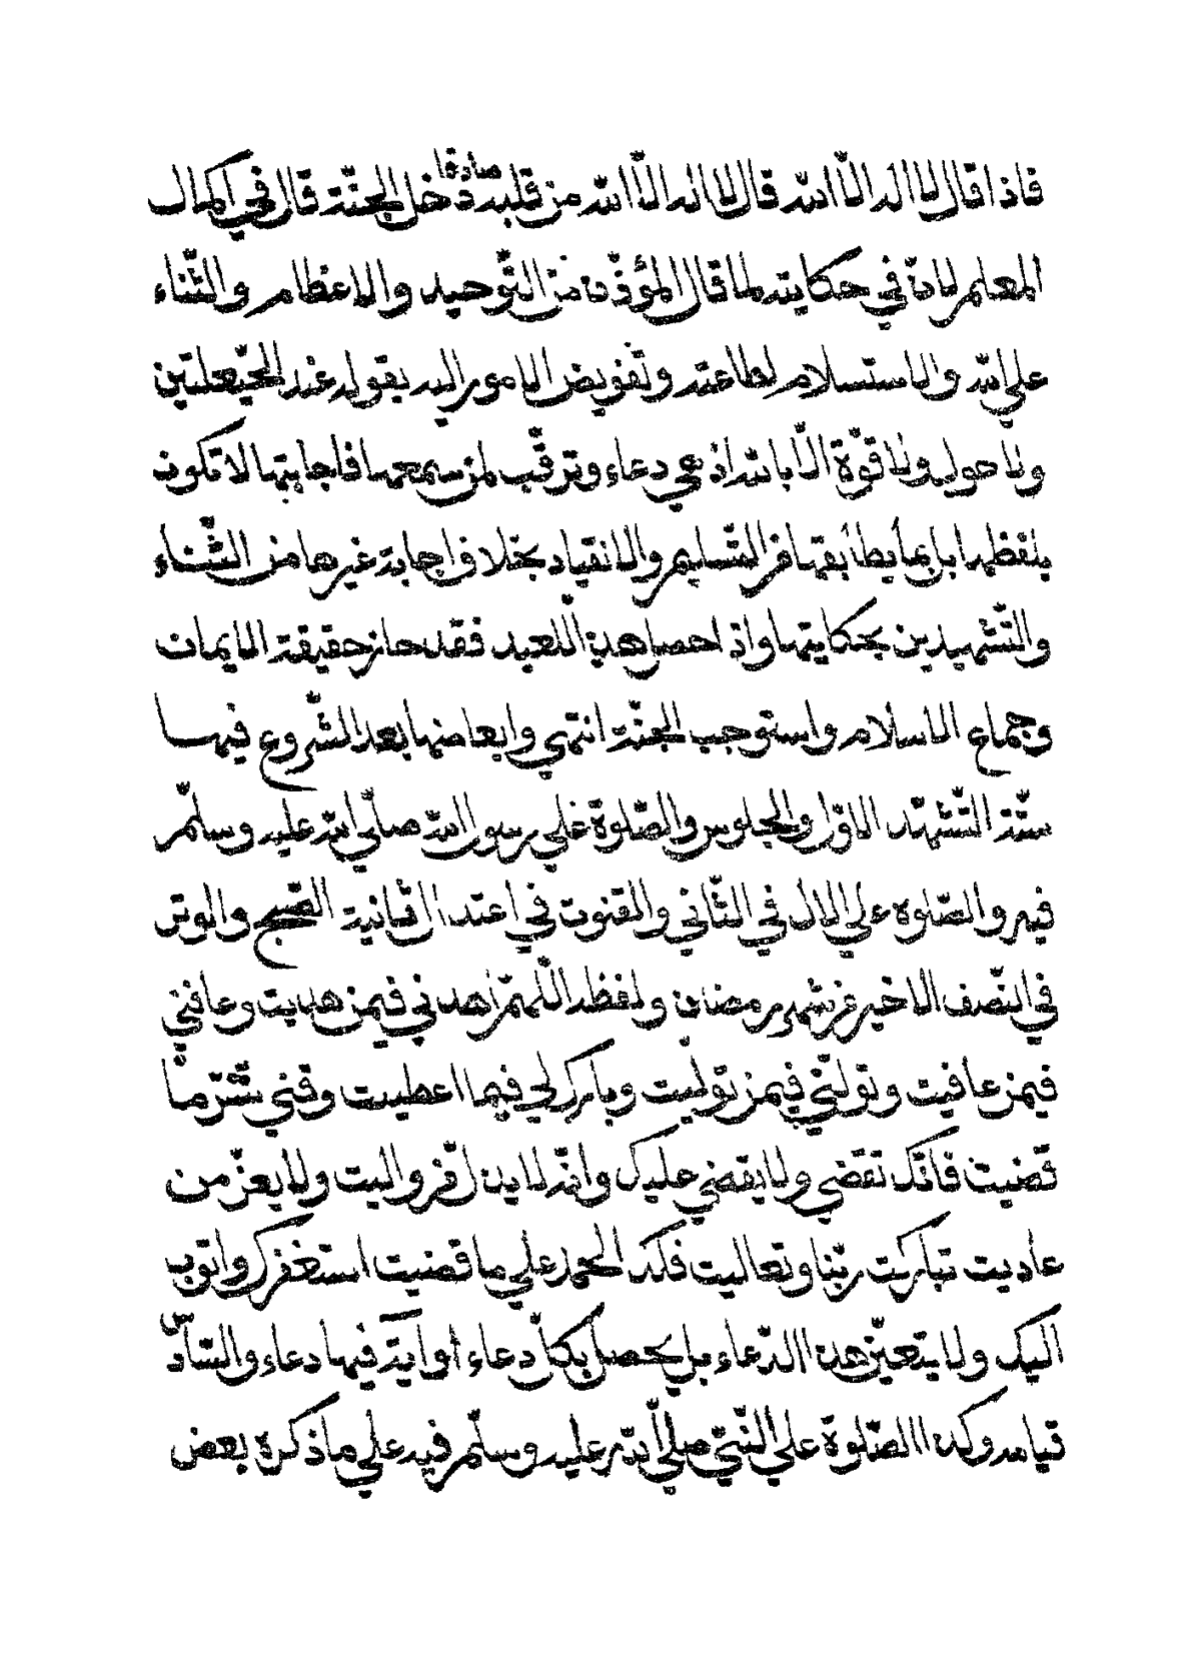 فاذا قال لا اله الا الله قال لا اله الا الله من قلبه صادقا دخل الجنة قال في اكمال
المعلم لان في حكايته لما قال المؤذن من التوحيد والاعظام والثناء
على الله والاستسلام لطاعته وتفويض الامور اليه بقوله عند الحيعلتين
ولا حول ولا قوة الا بالله اذ هي دعاء وترقب لمن سمعها فاجابتها لا تكون
بلفظها بل بما يطابقها من التسليم والانقياد بخلاف اجابة غيرها من الثناء
والتشهدين بحكايتها واذا حصل هذا للعبد فقد حاز حقيقة الايمان
وجماع الاسلام واستوجب الجنة انتهى وابعاضها بعد الشروع فيها
ستة التشهد الاول والجلوس والصلوة على رسول الله صلى الله عليه وسلم
فيه والصلوة على الال في الثاني والقنوت في اعتدال ثانية الصبح والوتر
في النصف الاخير من شهر رمضان ولفظه اللهم اهدني فيمن هديت وعافني
فيمن عافيت وتولني فيمن توليت وبارك لي فيما اعطيت وقني شر ما
قضيت فانك تقضي ولا يقضى عليك وانه لا يذل من واليت ولا يعز من
عاديت تباركت ربنا وتعاليت فلك الحمد على ما قضيت استغفرك واتوب
اليك ولا يتعين هذا الدعاء بل يحصل بكل دعاء او آية فيها دعاء والسادس
قيامه وكذا الصلوة على النبي صلى الله عليه وسلم فيه على ما ذكره بعض